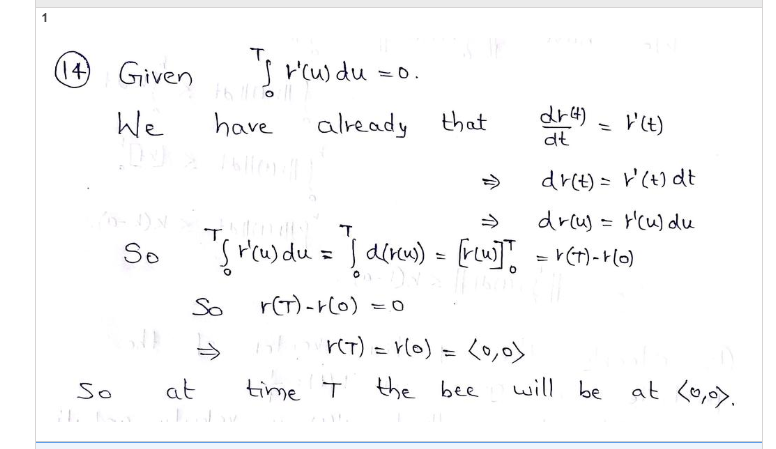 1
(14) Given ∫₀ᵀ r'(u) du = 0.
We have already that dr(t)/dt = r'(t)
⇒ dr(t) = r'(t) dt
⇒ dr(u) = r'(u) du
So ∫₀ᵀ r'(u) du = ∫₀ᵀ d(r(u)) = [r(u)]₀ᵀ = r(T) - r(0)
So r(T) - r(0) = 0
⇒ r(T) = r(0) = ⟨0,0⟩
So at time T the bee will be at ⟨0,0⟩.